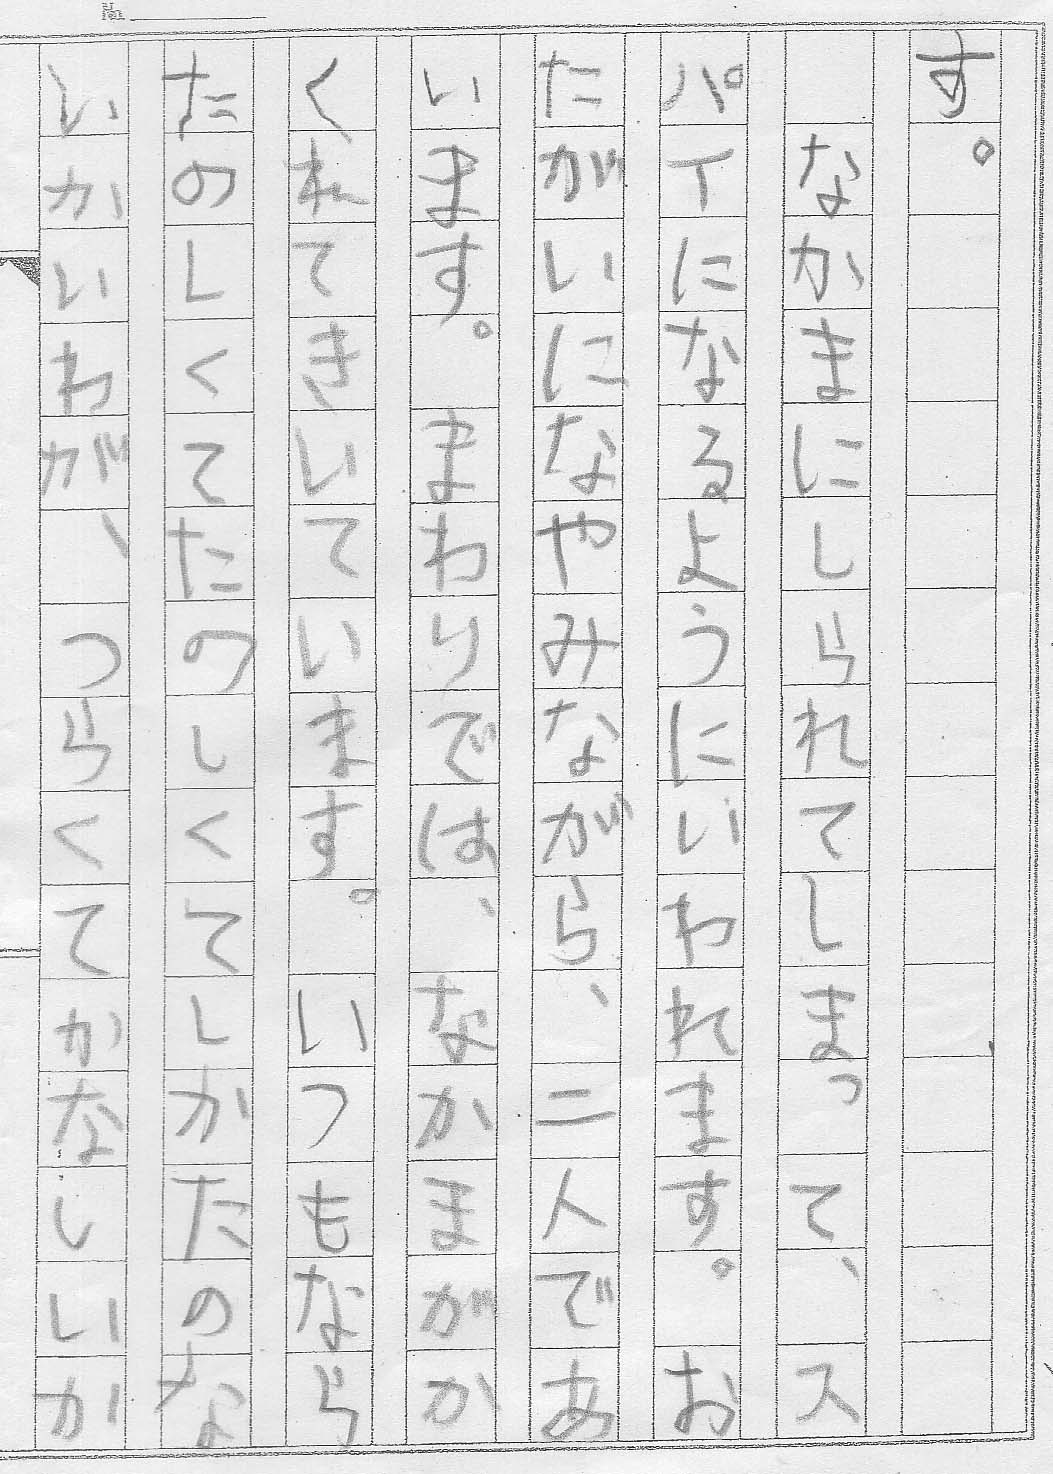 す。
なかまにしられてしまって、ス
パイになるようにいわれます。お
たがいになやみながら、二人であ
います。まわりでは、なかまがか
くれてきいています。いつもなら
たのしくてたのしくてしかたのな
いかいわが、つらくてかなしいか